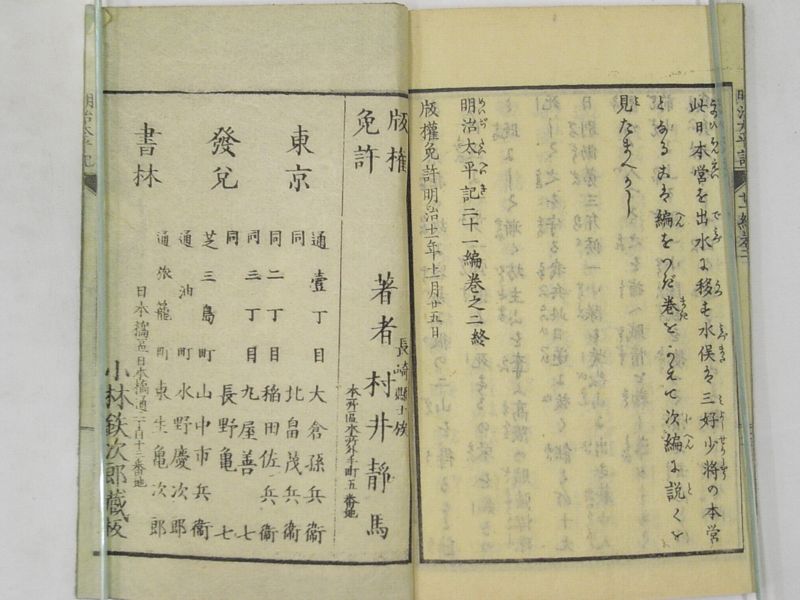 此日本営を出水に移も水俣は三好少将の本営
となる
編をつぎ巻をかえて次編に説くを
見たまへかし
明治太平記二十一編巻之二終
版權免許明治十一年十一月廿五日
版權
免許
長崎縣士族
著者 村井靜馬
本所區本所外手町五番地
東京
發兌
書林
通壹丁目 大倉孫兵衞
同 北畠茂兵衞
同二丁目 稲田佐兵衞
同三丁目 丸屋善七
同 長野亀七
芝三島町 山中市兵衞
通油町 水野慶次郎
通旅籠町 東生亀次郎
日本橋區日本橋通三丁目十三番地
小林鉄次郎藏板
明治太平記